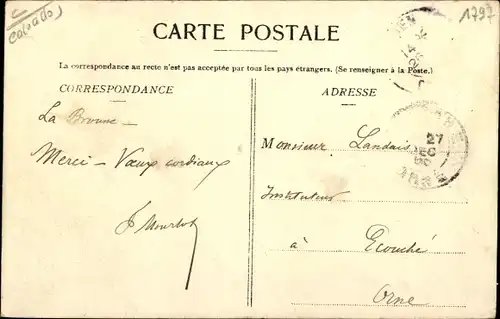 (Calvados)
1797
CARTE POSTALE
La correspondance au recto n'est pas acceptée par tous les pays étrangers. (Se renseigner à la Poste.)
CORRESPONDANCE
ADRESSE
La
Merci – Vœux cordiaux
Monsieur Landais
Instituteur
à Ecouché
Orne
27
DEC